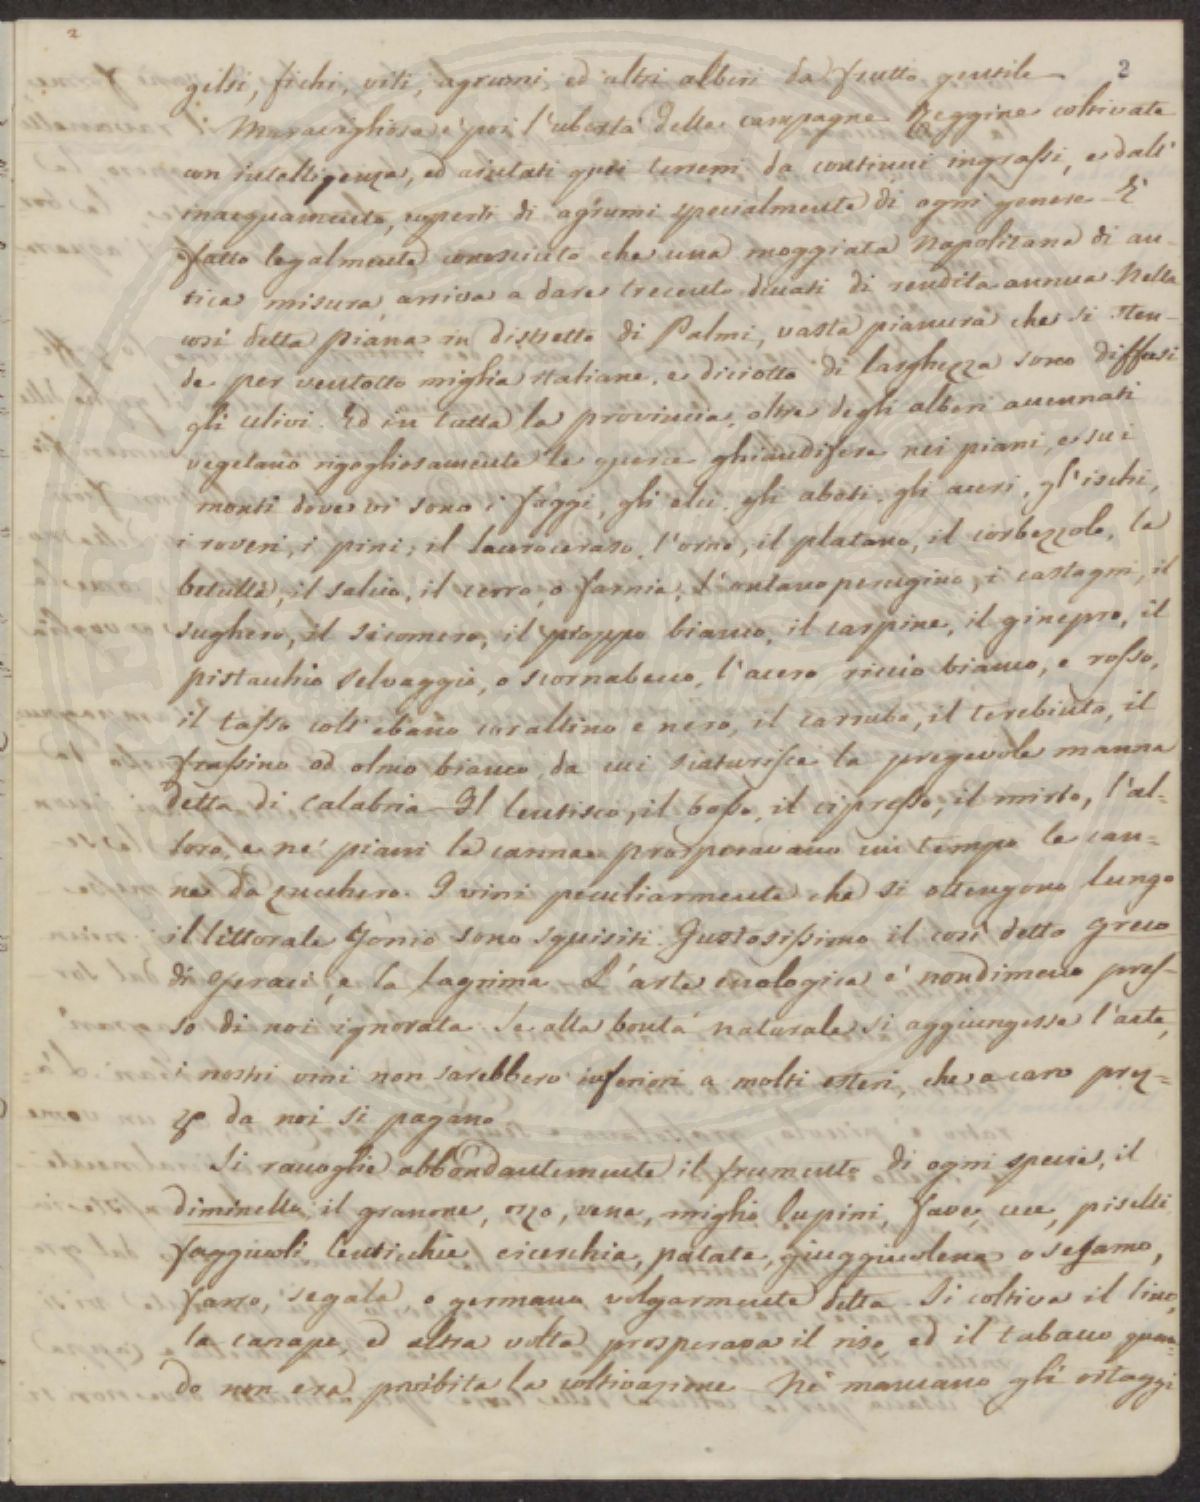 2
2
gelsi, fichi, viti, agrumi, ed altri alberi da frutto gentile
Maravigliosa è poi l'ubertà delle campagne Reggine coltivate
con intelligenza, ed aiutati quei terreni da continui ingrassi, e dall'
inacquamento, coperti di agrumi specialmente di ogni genere. È
fatto legalmente conosciuto che una moggiata Napolitana di an-
tica misura, arriva a dare trecento ducati di rendita annua. Nella
così detta Piana in Distretto di Palmi, vasta pianura che si sten-
de per ventotto miglia italiane, e diciotto di larghezza sono diffusi
gli ulivi. Ed in tutta la provincia, oltre degli alberi accennati
vegetano rigogliosamente le querce ghiandifere nei piani, e sui
monti dove vi sono i faggi, gli elci, gli abeti, gli aceri, gl'ischi,
i roveri, i pini, il lauroceraso, l'orno, il platano, il corbezzolo, la
betulla, il salcio, il cerro, o farnia, l'ontano peregino, i castagni, il
sughero, il sicomoro, il pioppo bianco, il carpine, il ginepro, il
pistacchio selvaggio, o scornabecco, l'acero riccio bianco, e rosso,
il tasso coll'ebano corallino e nero, il carrubo, il terebinto, il
frassino od olmo bianco, da cui scaturisce la pregevole manna
detta di Calabria. Il lentisco, il bosso, il cipresso, il mirto, l'al-
loro, e ne' piani la canna. prosperavano un tempo le can-
ne da zucchero. I vini peculiarmente che si ottengono lungo
il littorale Jonio sono squisiti. Gustosissimo il così detto greco
di Geraci, e la lagrima. L'arte enologica è nondimeno pres-
so di noi ignorata. Se alla bontà naturale si aggiungesse l'arte,
i nostri vini non sarebbero inferiori a molti esteri, che a caro prez-
zo da noi si pagano
Si raccoglie abbondantemente il frumento di ogni specie, il
diminella, il granone, orzo, vena, miglio, lupini, fave, cece, piselli
faggiuoli, lenticchie, cicerchia, patate, giuggiulena o sesamo,
farro, segala o germana volgarmente detta. Si coltiva il lino,
la canape, ed altra volta prosperava il riso, ed il tabacco quan-
do non era proibita la coltivazione. Nè mancano gli ortaggi